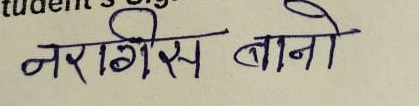 tudent's Sig
नरगिस बानो